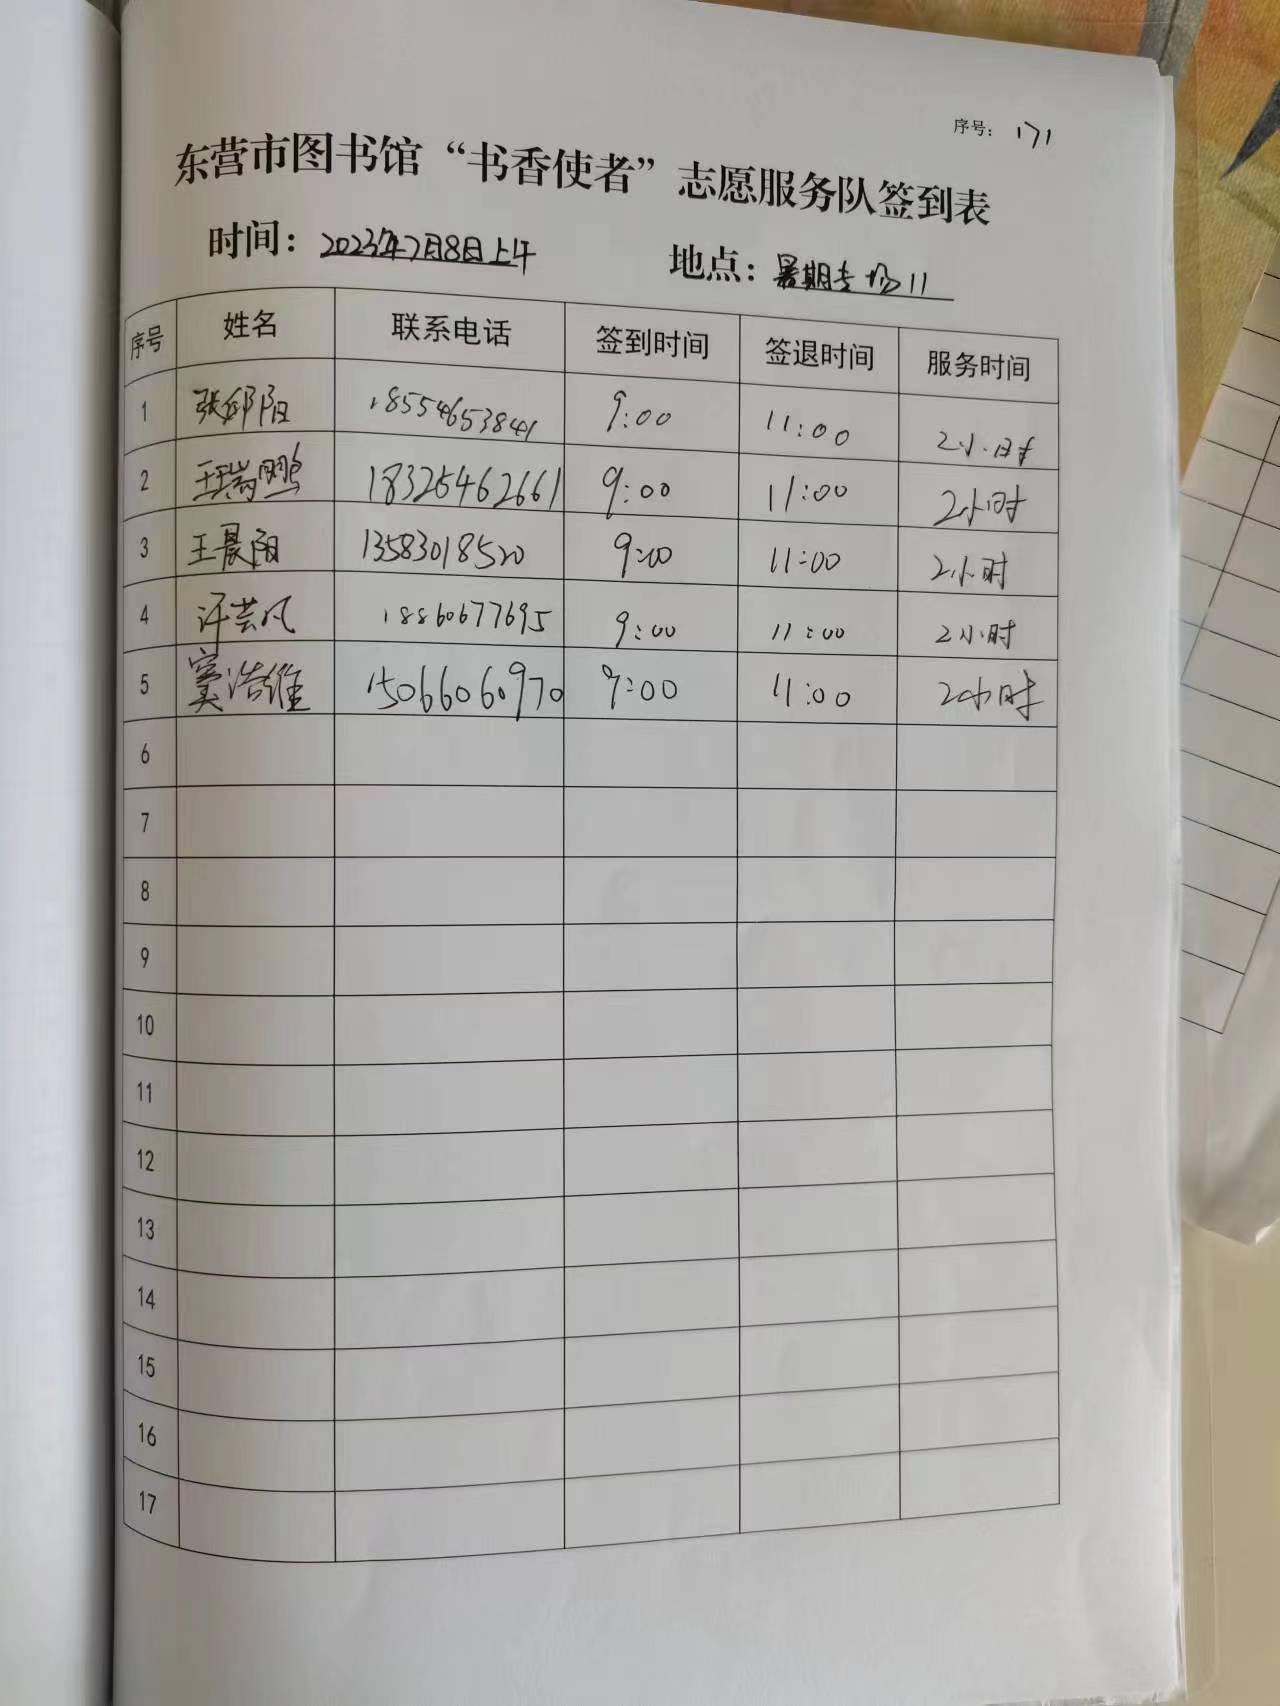 序号： 171
东营市图书馆“书香使者”志愿服务队签到表
时间：2023年7月8日上午 地点：暑期专场11
序号 姓名 联系电话 签到时间 签退时间 服务时间
1 张邱阳 18554653841 9:00 11:00 2小时
2 王瑞鹏 18325462661 9:00 11:00 2小时
3 王晨阳 13583018520 9:00 11:00 2小时
4 许芸风 18860677695 9:00 11:00 2小时
5 窦浩维 15066060970 9:00 11:00 2小时
6
7
8
9
10
11
12
13
14
15
16
17